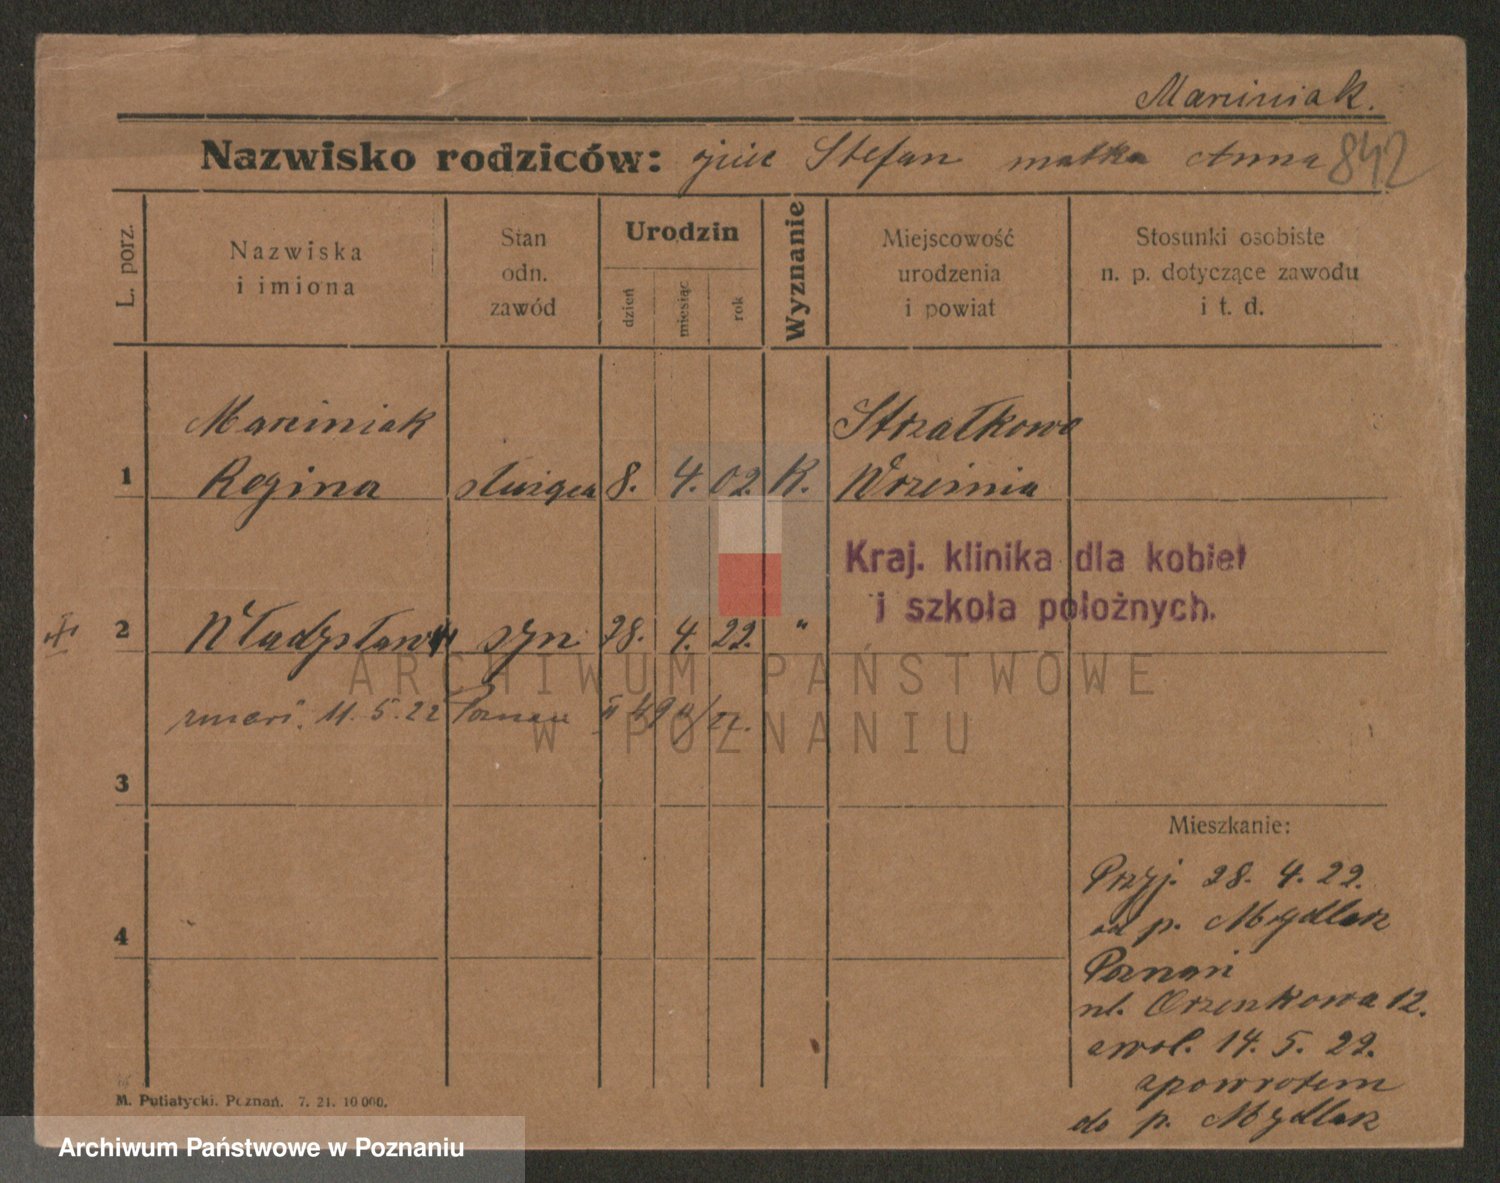 Marciniak.
Nazwisko rodziców: ojciec Stefan matka Anna 842
L. porz.
Nazwiska
i imiona
Stan
odn.
zawód
Urodzin
dzień
miesiąc
rok
Wyznanie
Miejscowość
urodzenia
i powiat
Stosunki osobiste
n. p. dotyczące zawodu
i t. d.
Marciniak Strzałkowo
1 Regina służąca 8. 4. 02. K. Września
Kraj. klinika dla kobiet
i szkoła położnych.
2 Władysław syn 28. 4. 22. "
zmarł. 11. 5. 22 Poznań II
3
4
Mieszkanie:
Przyj. 28. 4. 22.
od p. Mydlak
Poznań
ul. 12.
zwol. 14. 5. 22.
zpowrotem
do p. Mydlak
M. Putiatycki. Poznań. 7. 21. 10 000.
ARCHIWUM PAŃSTWOWE
W POZNANIU
Archiwum Państwowe w Poznaniu